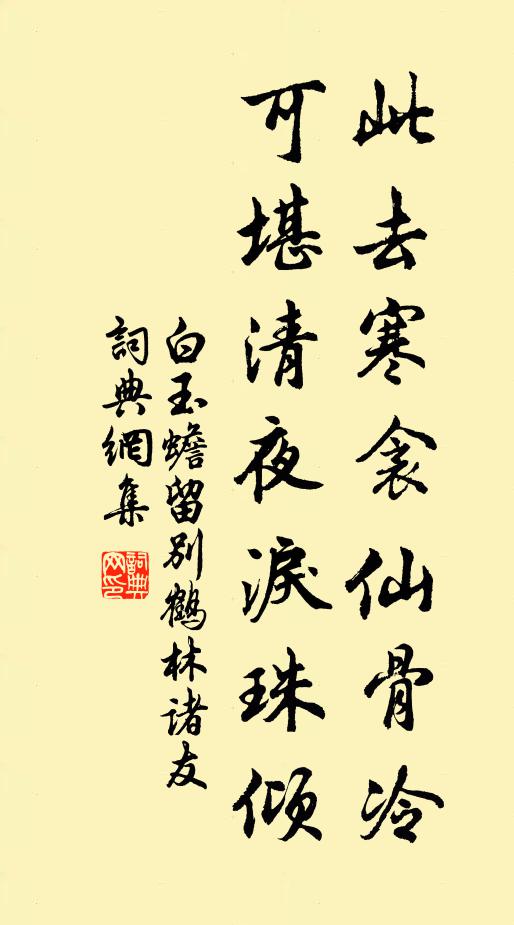 此去寒衾仙骨冷
可堪清夜淚珠傾
白玉蟾留別鶴林诸友
詞典網集
詞典網印